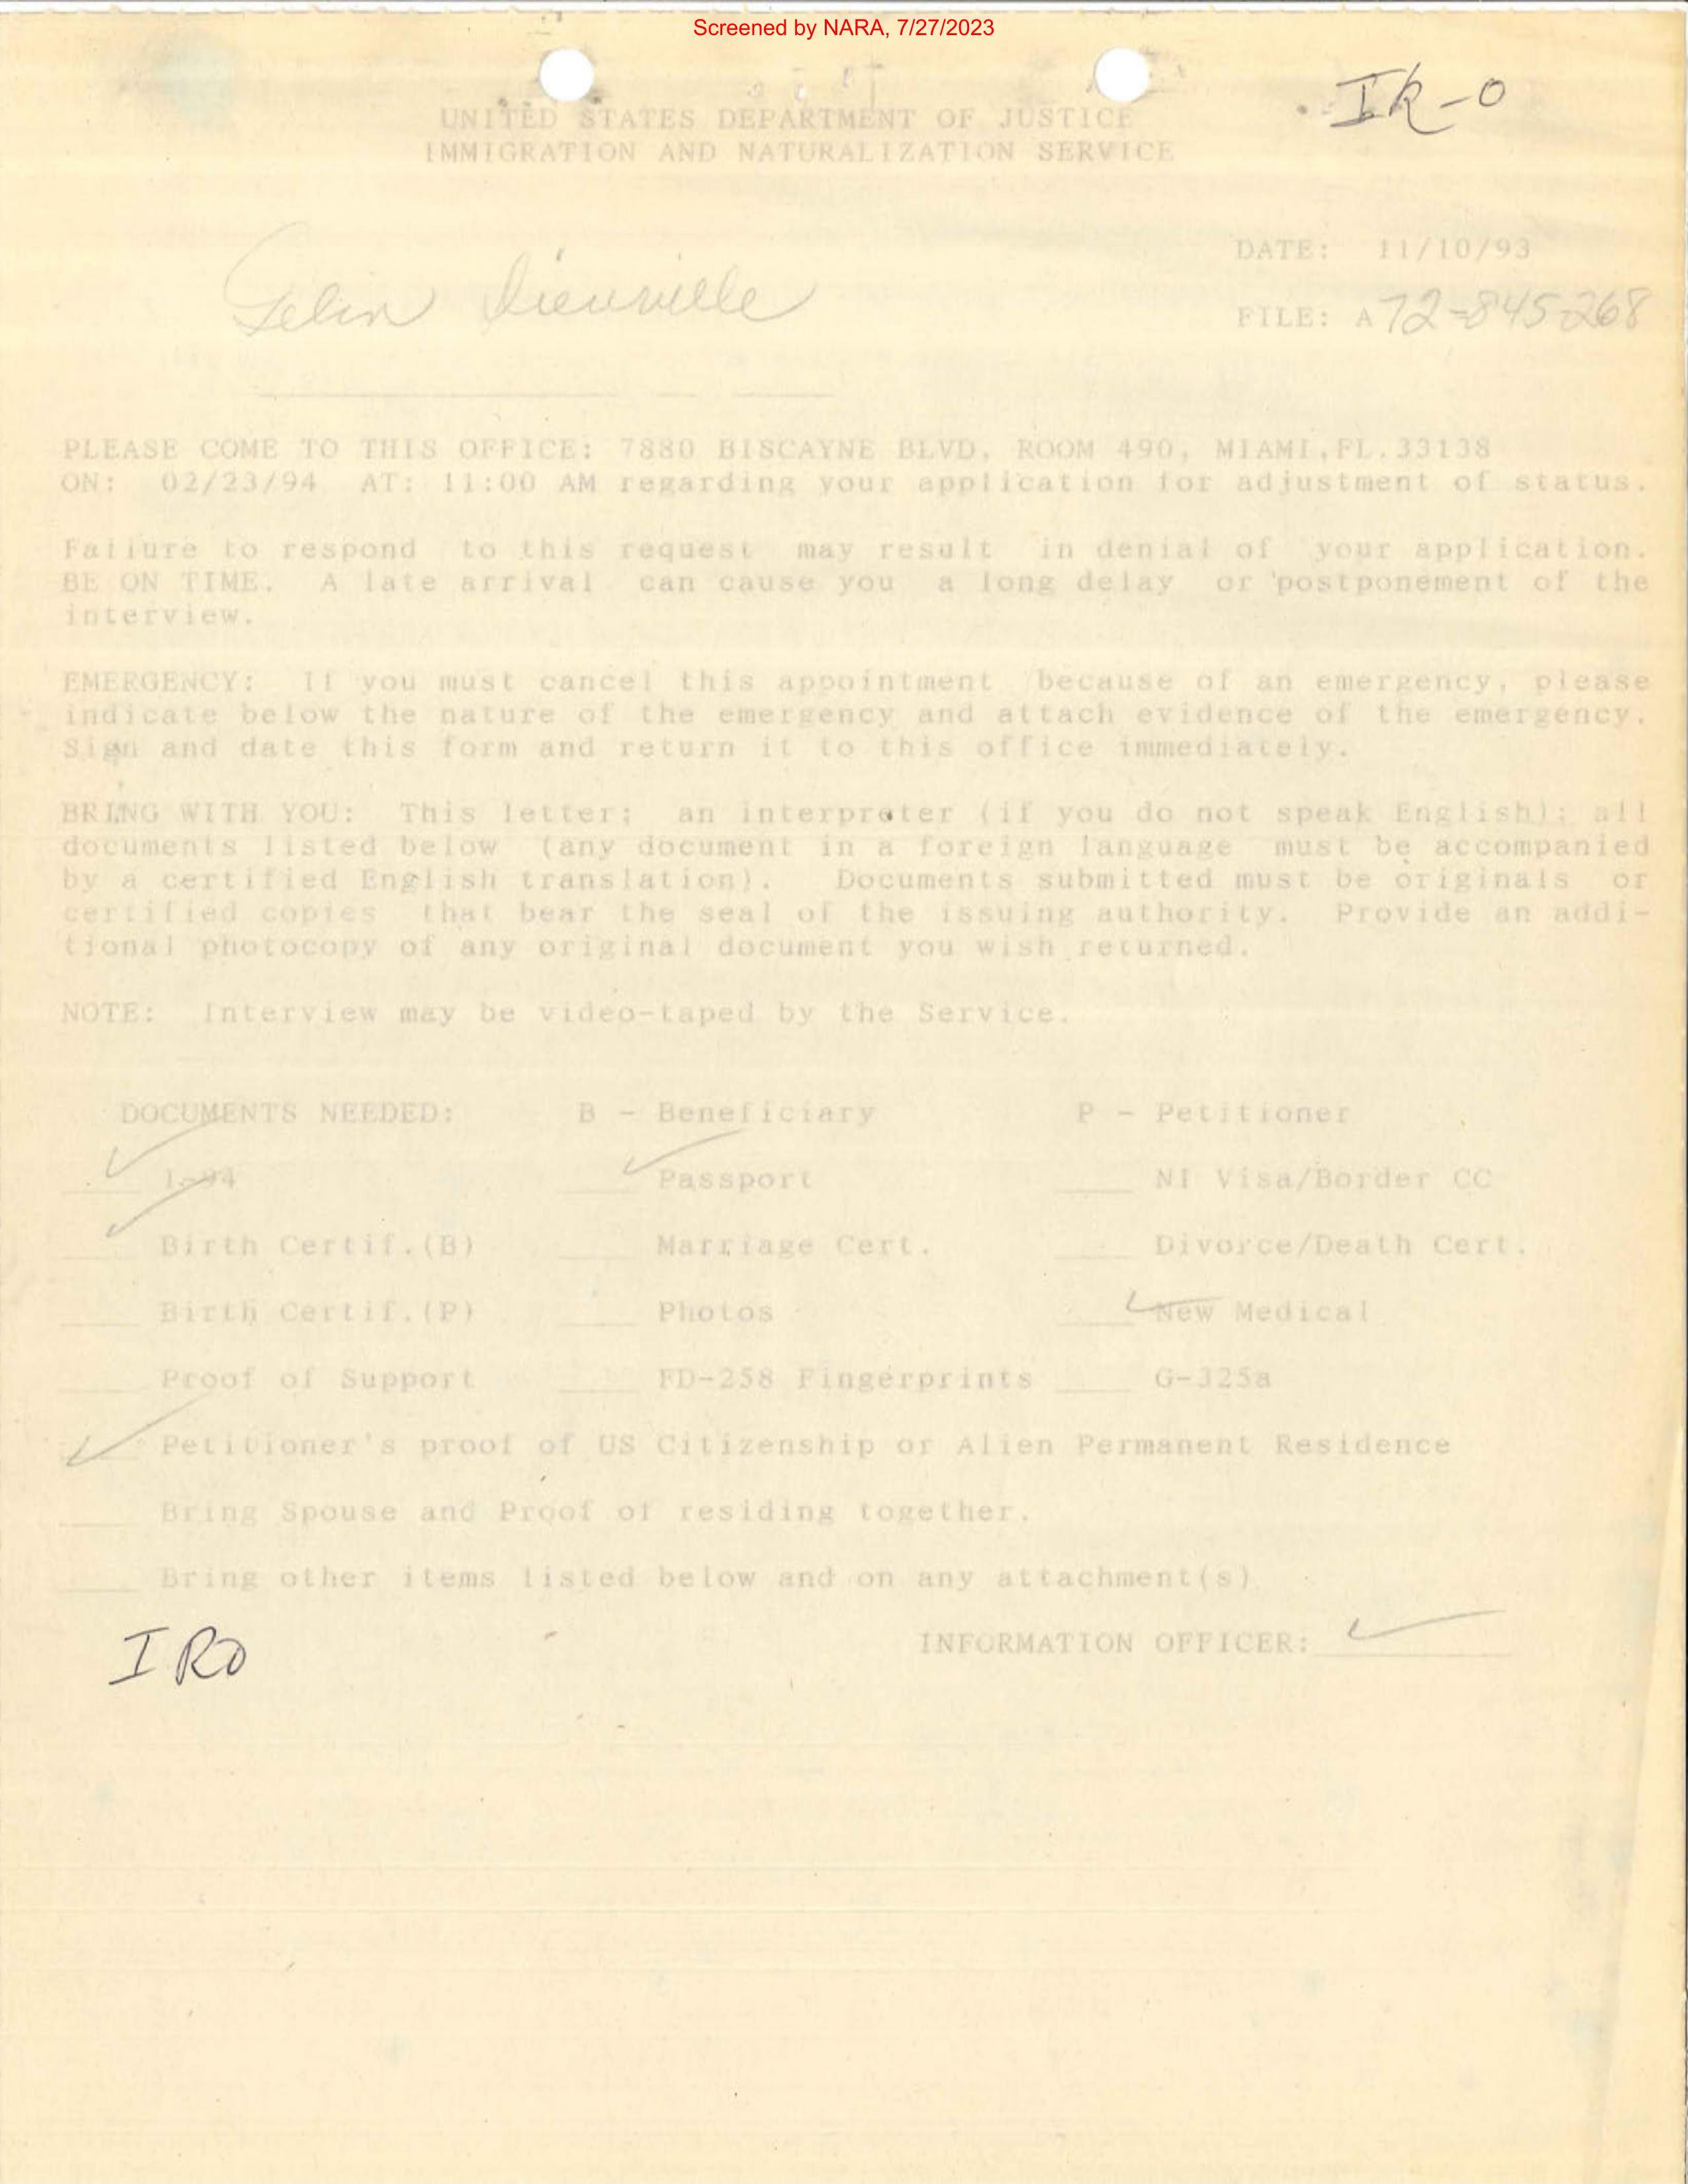 Screened by NARA, 7/27/2023
IR-0
UNITED STATES DEPARTMENT OF JUSTICE
IMMIGRATION AND NATURALIZATION SERVICE
DATE: 11/10/93
FILE: A72-845-268
PLEASE COME TO THIS OFFICE: 7880 BISCAYNE BLVD, ROOM 490, MIAMI,FL.33138
ON: 02/23/94 AT: 11:00 AM regarding your application for adjustment of status.
Failure to respond to this request may result in denial of your application.
BE ON TIME. A late arrival can cause you a long delay or postponement of the
interview.
EMERGENCY: If you must cancel this appointment because of an emergency, please
indicate below the nature of the emergency and attach evidence of the emergency.
Sign and date this form and return it to this office immediately.
BRING WITH YOU: This letter; an interpreter (if you do not speak English); all
documents listed below (any document in a foreign language must be accompanied
by a certified English translation). Documents submitted must be originals or
certified copies that bear the seal of the issuing authority. Provide an addi-
tional photocopy of any original document you wish returned.
NOTE: Interview may be video-taped by the Service.
DOCUMENTS NEEDED: B - Beneficiary P - Petitioner
✓ I-94 ✓ Passport ____ NI Visa/Border CC
✓ Birth Certif.(B) ____ Marriage Cert. ____ Divorce/Death Cert.
____ Birth Certif.(P) ____ Photos ✓ New Medical
____ Proof of Support ____ FD-258 Fingerprints ____ G-325a
✓ Petitioner's proof of US Citizenship or Alien Permanent Residence
____ Bring Spouse and Proof of residing together.
____ Bring other items listed below and on any attachment(s)
IRO
INFORMATION OFFICER: ✓